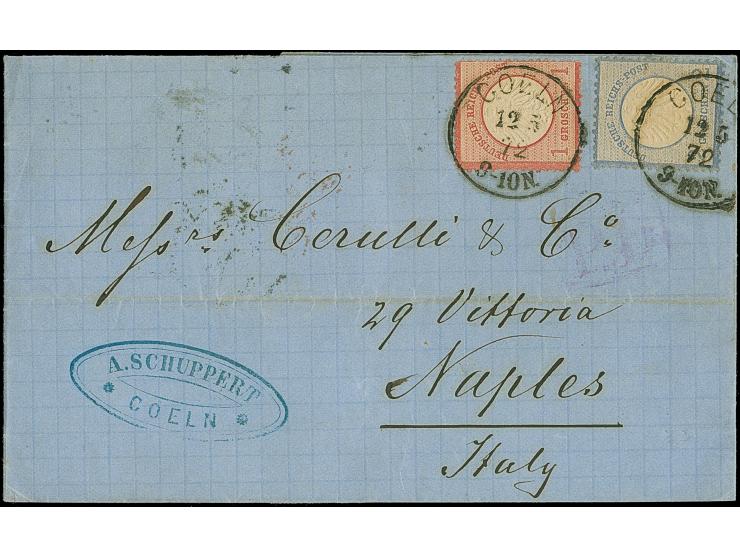 DEUTSCHE REICHS-POST
1 GROSCHEN 1
COELN
12 5
72
9-10N.
REICHS-POST
COEL
12 5
72
9-10N.
Messrs Cerulli & Co.
29 Vittoria
Naples
Italy
A. SCHUPPERT
* COELN *